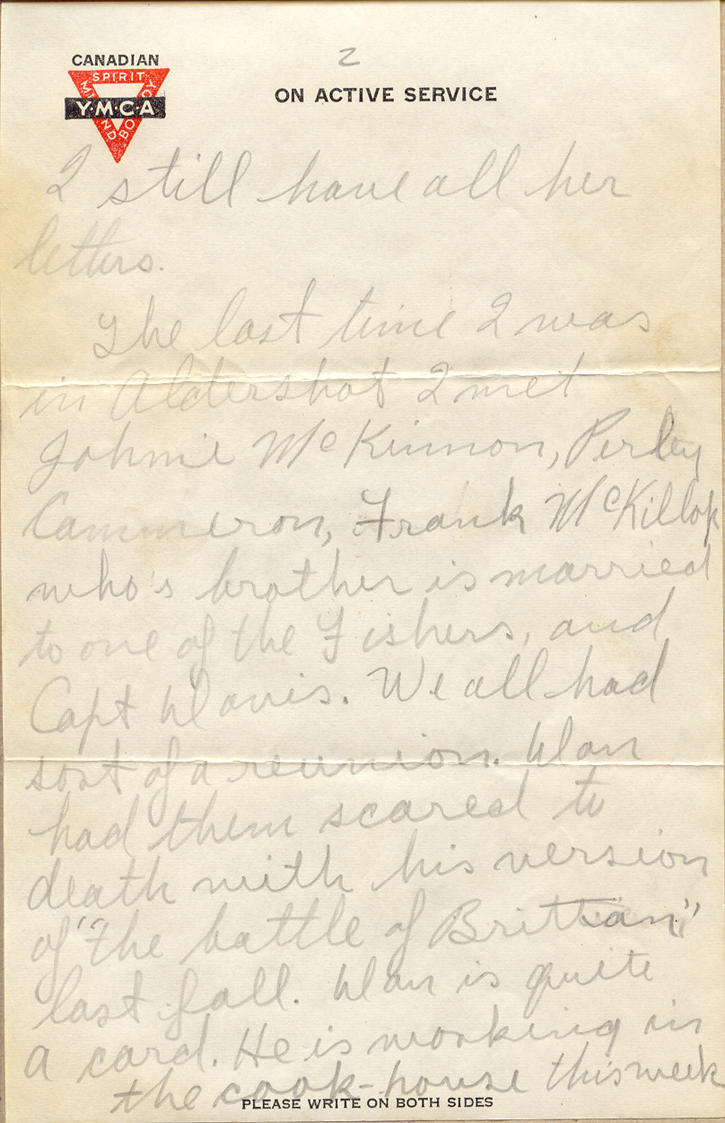 CANADIAN
SPIRIT
MIND
Y·M·C·A
BODY
2
ON ACTIVE SERVICE
I still have all her
letters.
The last time I was
in Aldershot I met
Johnie McKinnon, Perley
Cammeron, Frank McKillop
who's brother is married
to one of the Fishers, and
Capt Davis. We all had
sort of a reunion. Dan
had them scared to
death with his version
of "The battle of Brittian"
last fall. Dan is quite
a card. He is working in
the cook-house this week
PLEASE WRITE ON BOTH SIDES